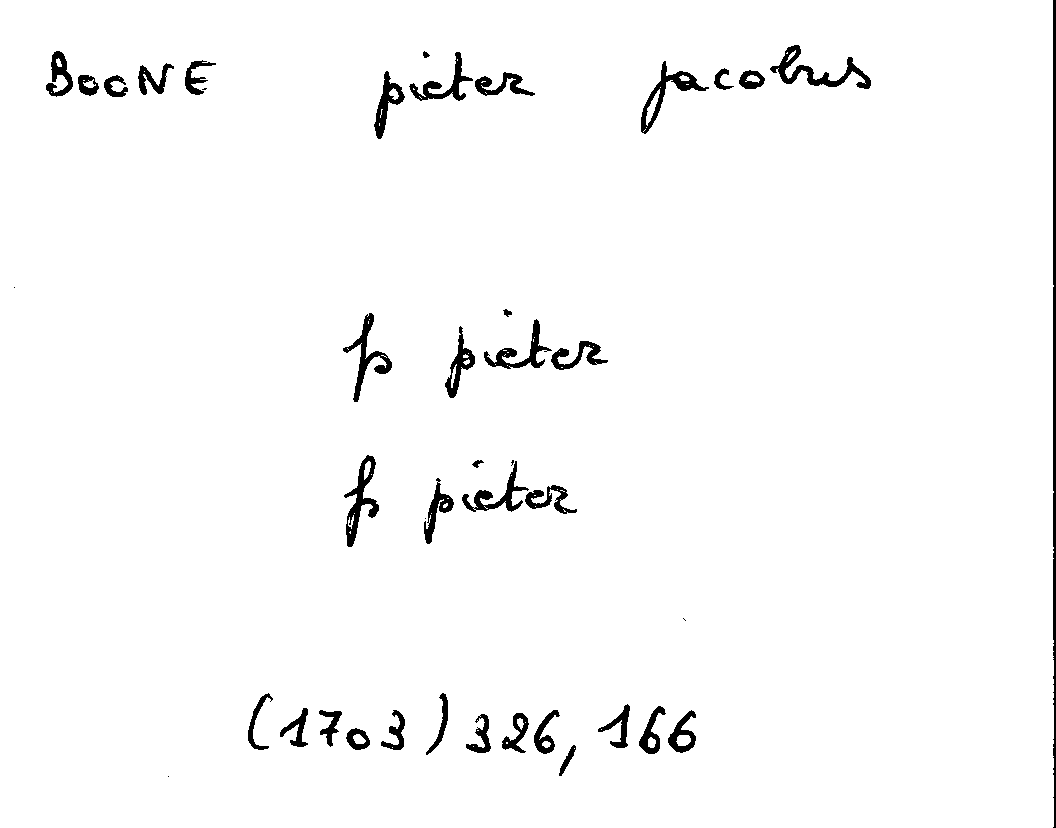 BOONE pieter jacobus
fs pieter
fs pieter
(1703) 326, 166